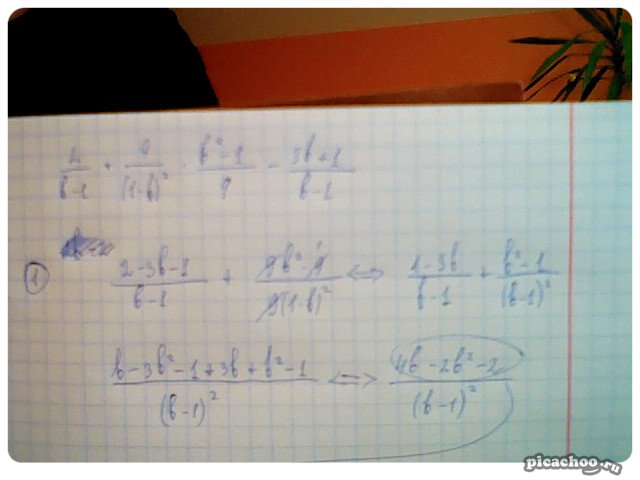 2/(b-1) + 9/(1-b)² · (b²-1)/9 - (3b+1)/(b-1)
① (2-3b-1)/(b-1) + (9b²-9)/(9(1-b)²) <=> (1-3b)/(b-1) + (b²-1)/(b-1)²
(b-3b²-1+3b+b²-1)/(b-1)² <=> (4b-2b²-2)/(b-1)²
picachoo.ru